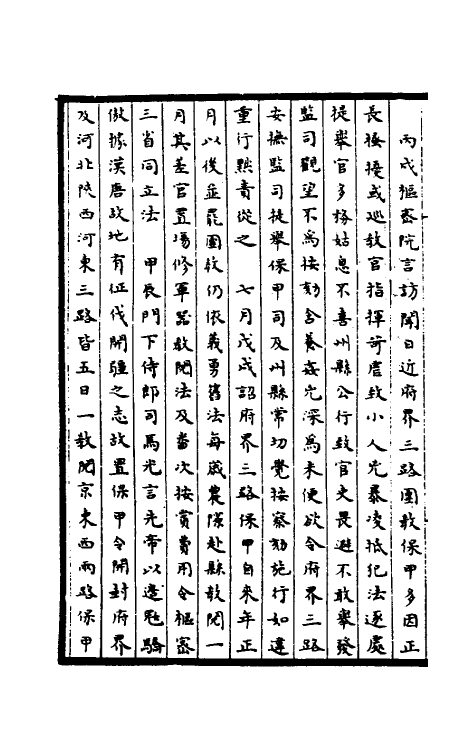 丙戌樞密院言訪聞日近府界三路團教保甲多因正
長接擾或巡教官指揮苛虐致小人兇暴凌抵犯法逐處
提舉官多務姑息不喜州縣公行致官吏畏避不敢舉發
監司觀望不為按劾含養姦宄深為未便欲令府界三路
安撫監司提舉保甲司及州縣常切覺按察劾施行如違
重行黜責從之　七月戊戌詔府界三路保甲自來年正
月以後並罷團教仍依義勇舊法每歲農隙赴縣教閱一
月其差官置場修軍器教閱法及番次按賞費用令樞密
三省同立法　甲辰門下侍郎司馬光言先帝以邊兵驕
傲據漢唐故地有征伐開疆之志故置保甲令開封府界
及河北陝西河東三路皆五日一教閱京東西兩路保甲